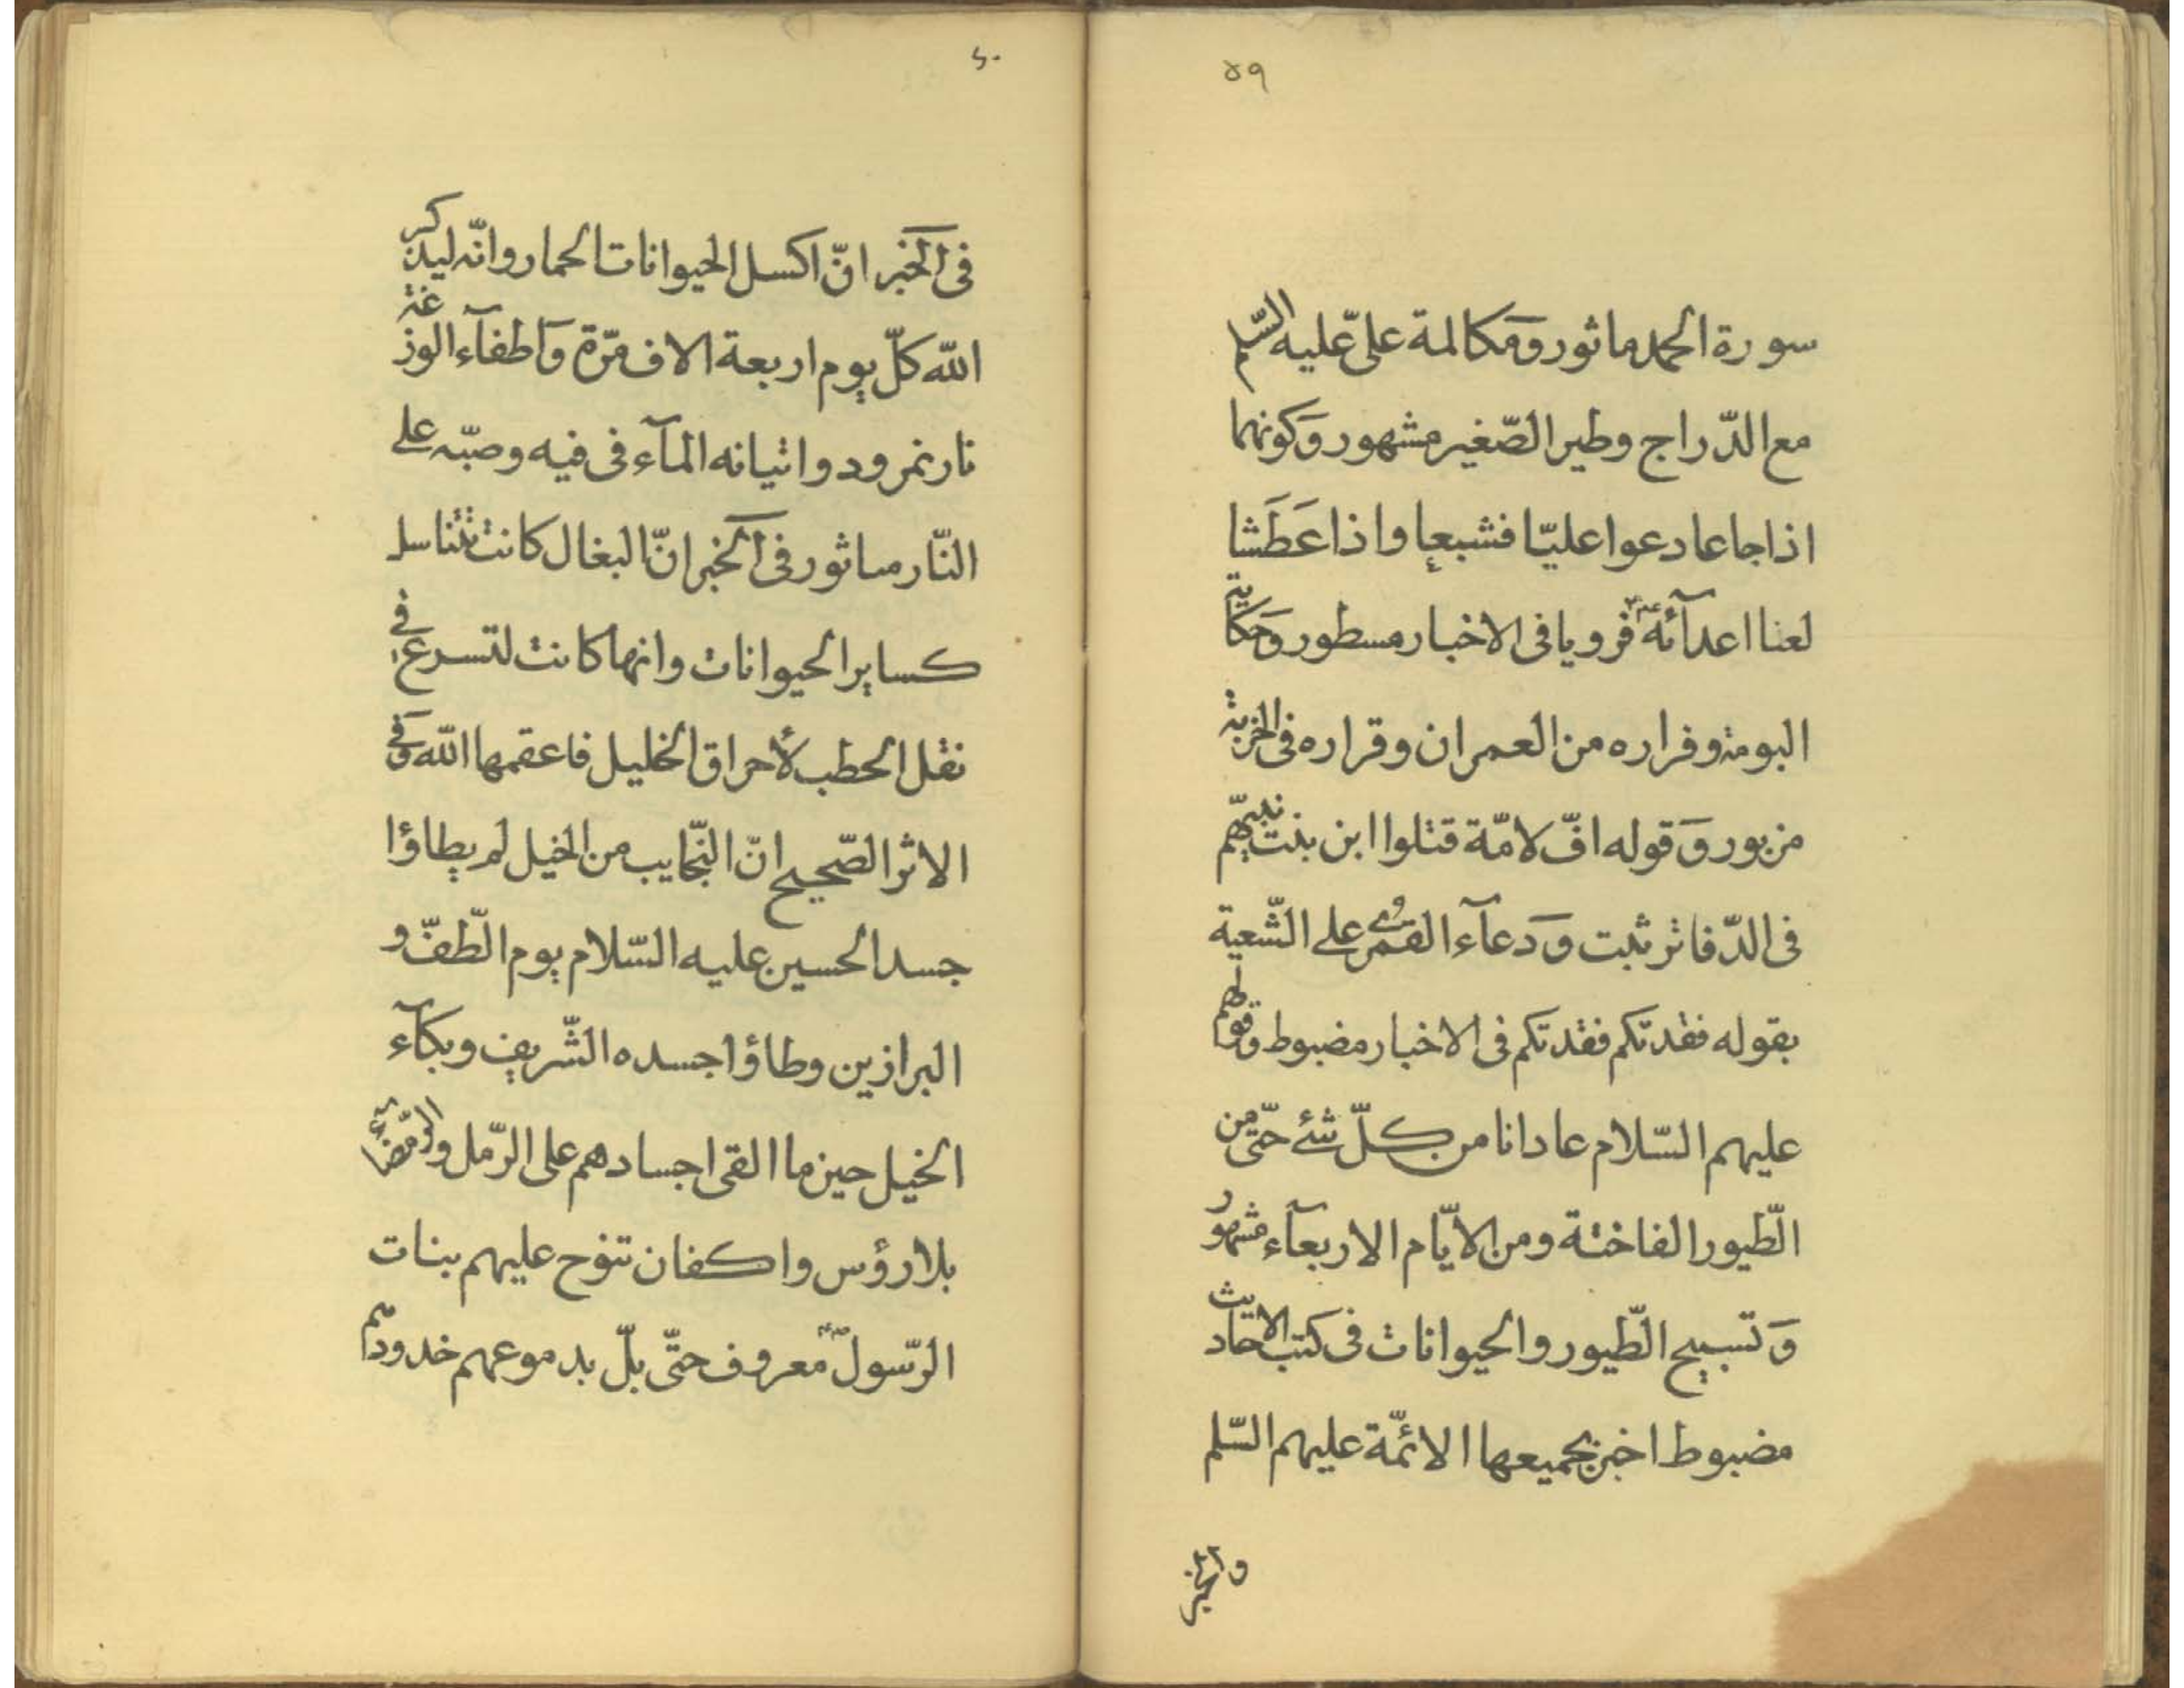 ٥٩
سورة الحمد ماثور وَمكالمة علىّ عليه السّلم
مع الدّراج وطير الصّغير مشهور وَكونهما
اذا جاعا دعوا عليّا فشبعا واذا عَطَشا
لعنا اعدآئه فرويا فى الاخبار مسطور وَحكاية
البومة وفراره من العمران وقراره فى الخربة
مزبور وَقوله افّ لامّة قتلوا ابن بنت نبيّهم
فى الدّفاتر ثبت وَدعآء القمرى على الشّعية
بقوله فقدتكم فقدتكم فى الاخبار مضبوط وقولهم
عليهم السّلام عادانا من كلّ شئ حتّى من
الطّيور الفاختة ومن الايّام الاربعآء مشهور
وَتسبيح الطّيور والحيوانات فى كتب الاحاديث
مضبوط اخبر بجميعها الائمّة عليهم السّلم
٦٠
فى الخبر انّ اكسل الحيوانات الحمار وانّه ليذكر
الله كلّ يوم اربعة الاف مرّة وَاطفآء الوزغة
نار نمرود واتيانه المآء فى فيه وصبّه على
النّار ماثور فى الخبر انّ البغال كانت تتناسل
كساير الحيوانات وانها كانت لتسرع فى
نقل الحطب لأحراق الخليل فاعقمها الله وَفى
الاثر الصّحيح انّ النّجايب من الخيل لم يطاؤا
جسد الحسين عليه السّلام يوم الطّفّ و
البراذين وطاؤا جسده الشّريف وبكآء
الخيل حين ما القى اجسادهم على الرّمل والرّمضآء
بلا رؤس واكفان تنوح عليهم بنات
الرّسول معروف حتّى بلّ بدموعهم خدودهم